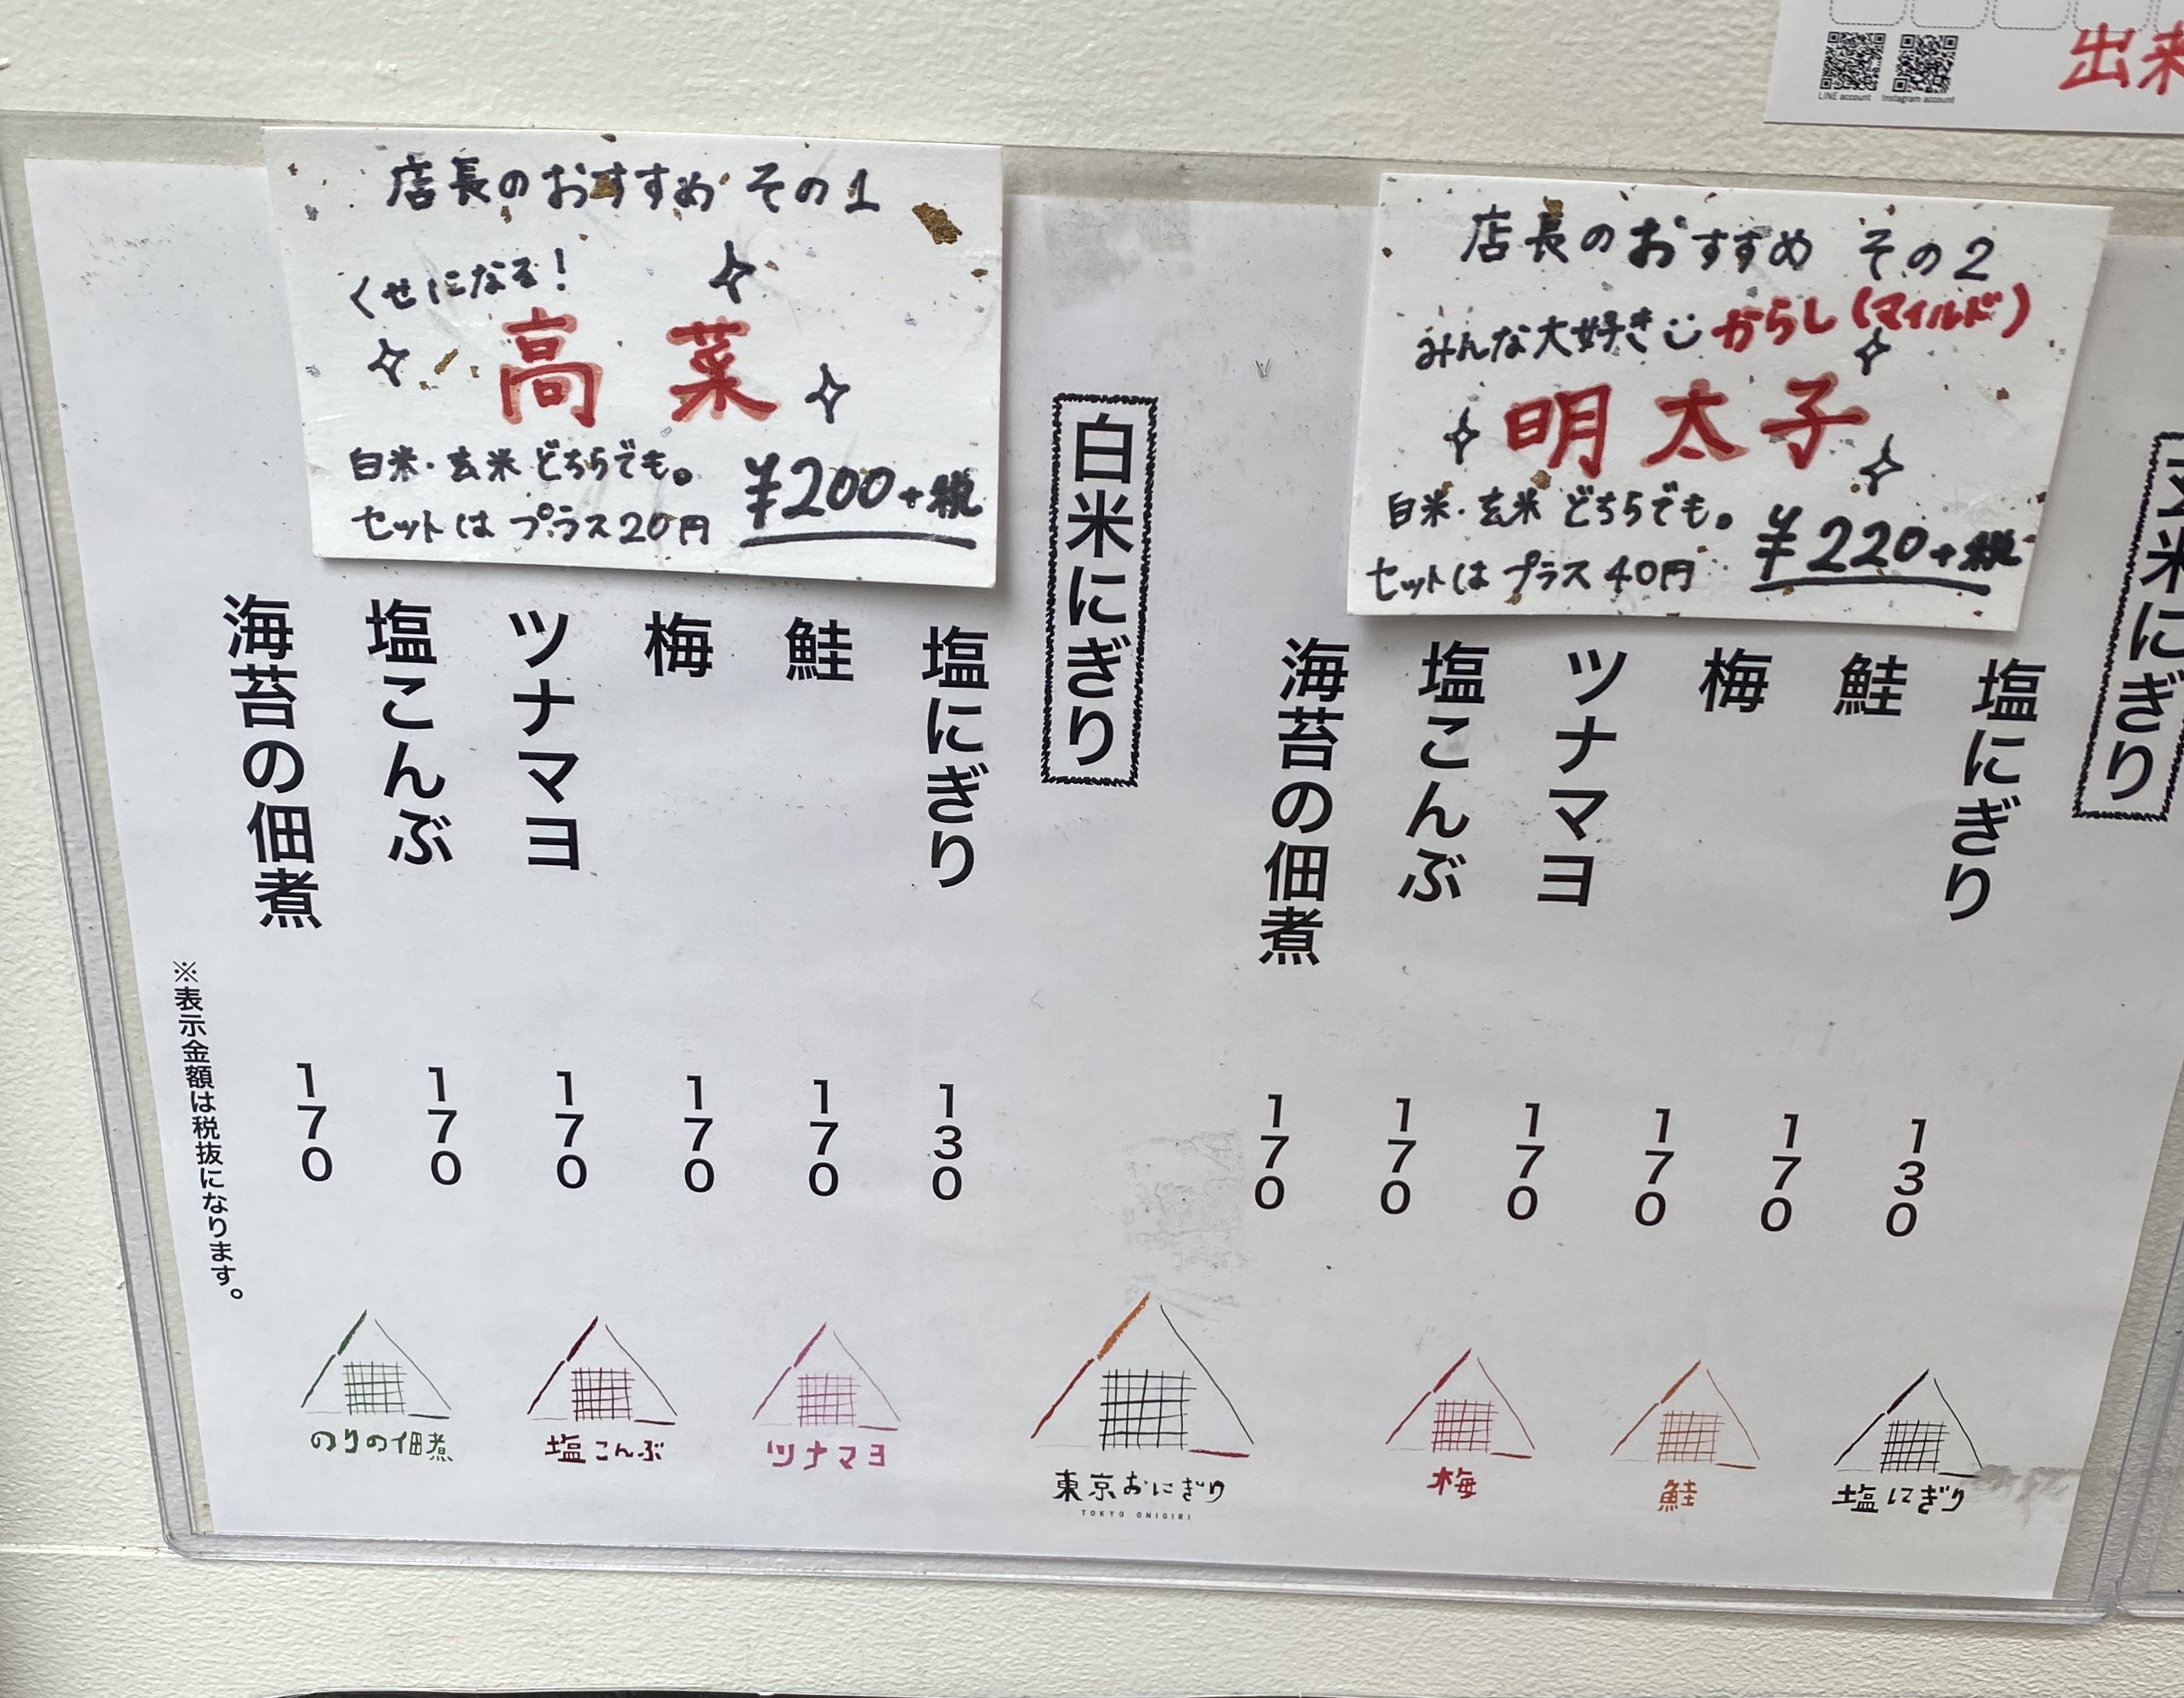 LINE account
Instagram account
出来
店長のおすすめ その1
くせになる!
高菜
白米・玄米 どちらでも。
セットは プラス20円
¥200+税
店長のおすすめ その2
みんな大好き からし(マイルド)
明太子
白米・玄米 どちらでも。
セットは プラス40円
¥220+税
玄米にぎり
塩にぎり 130
鮭 170
梅 170
ツナマヨ 170
塩こんぶ 170
海苔の佃煮 170
白米にぎり
塩にぎり 130
鮭 170
梅 170
ツナマヨ 170
塩こんぶ 170
海苔の佃煮 170
※表示金額は税抜になります。
のりの佃煮
塩こんぶ
ツナマヨ
東京おにぎり
TOKYO ONIGIRI
梅
鮭
塩にぎり